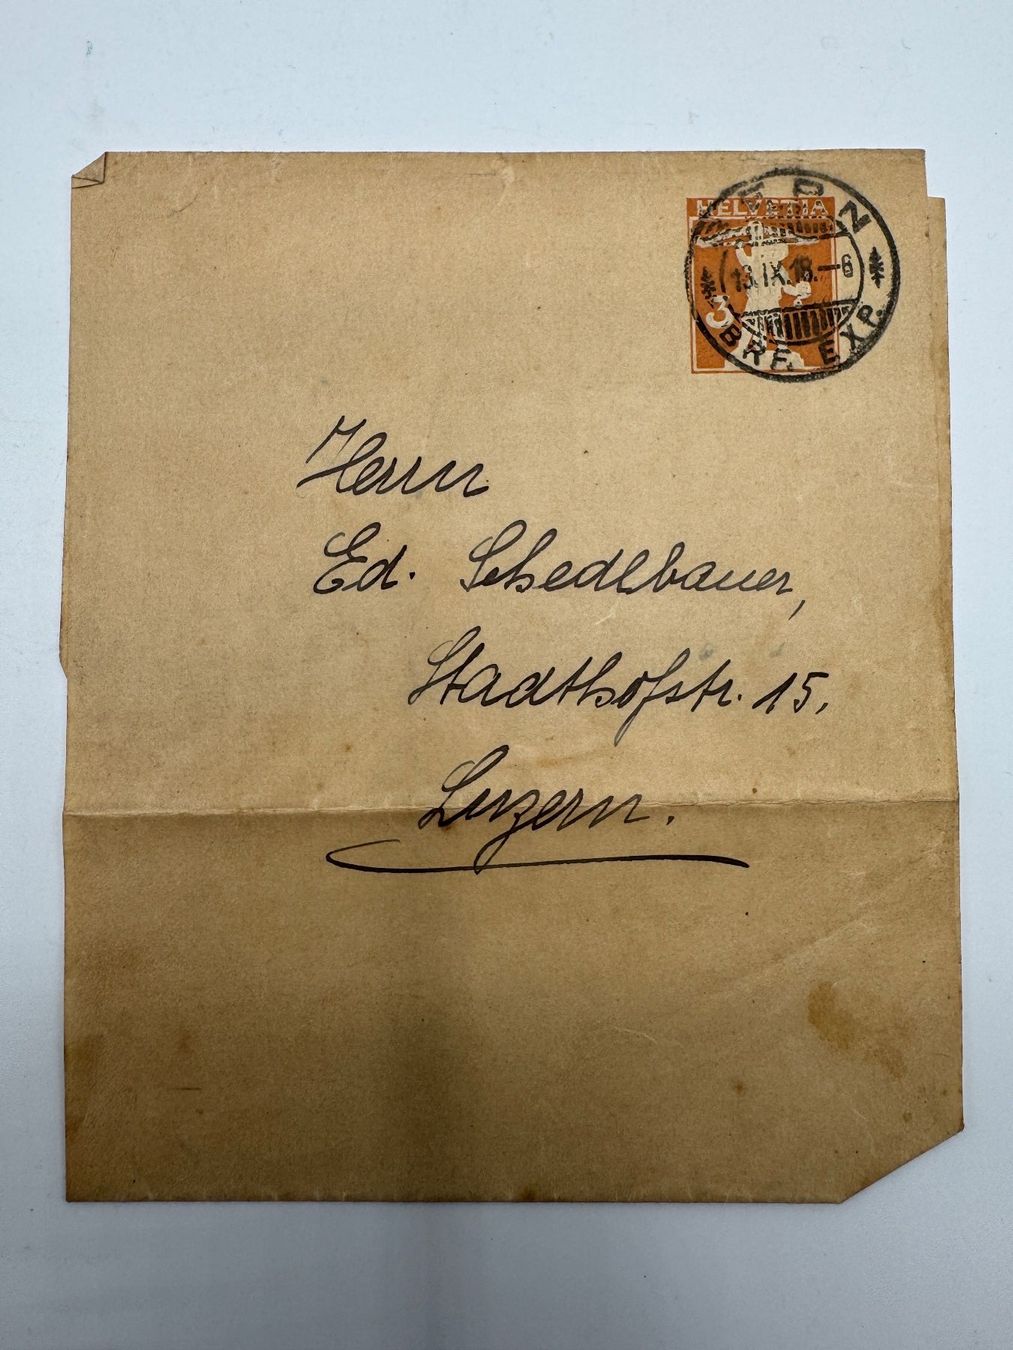 BERN
HELVETIA
13.IX.18.-6
3
BRF. EXP.
Herrn
Ed. Schedlbauer,
Stadthofstr. 15,
Luzern.